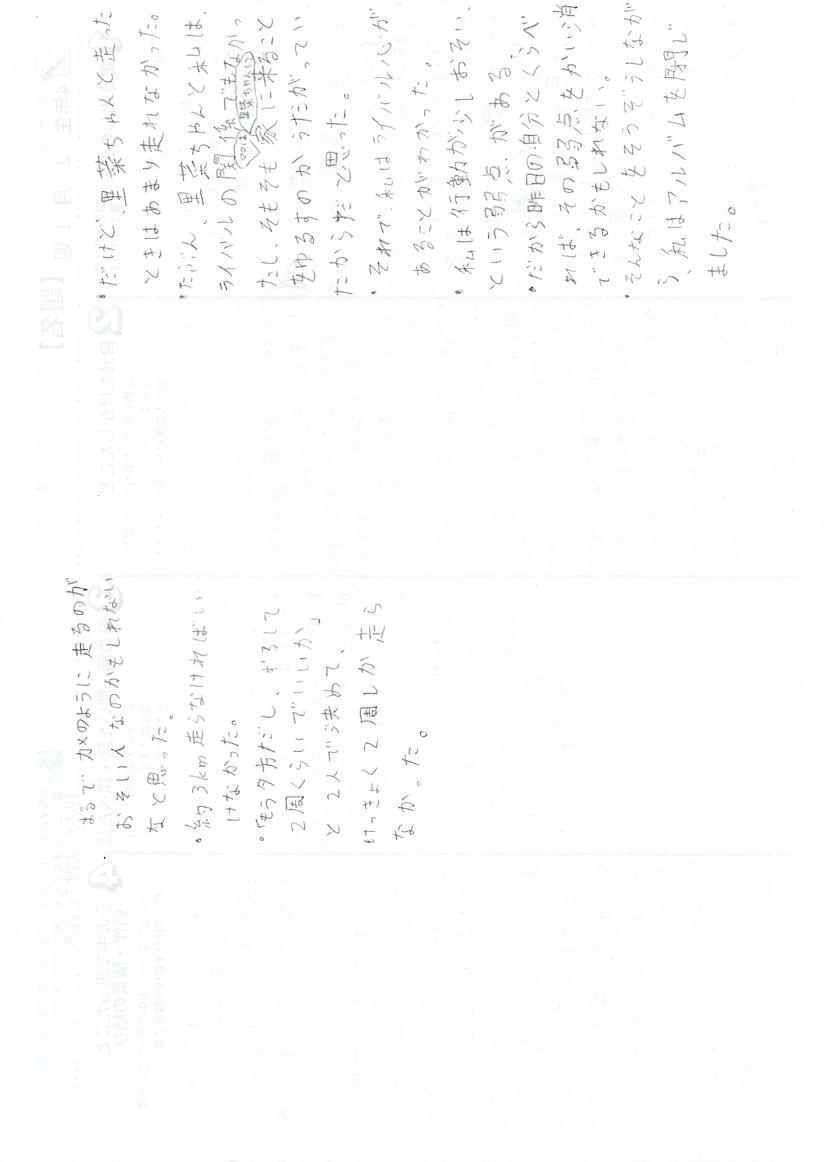 まるでカメのように走るのが
おそい人なのかもしれない
なと思った。
・約3km走らなければい
けなかった。
・「もう夕方だし、ずるして
2周くらいでいいか」
と2人で決めて、
けっきょく2周しか走ら
なかった。
・だけど、里菜ちゃんと走った
ときはあまり走れなかった。
・たぶん、里菜ちゃんと私は、
ライバルの関係でもなかっ
たし、そもそも家に来ること
ママは、里菜ちゃんに
をゆるすのかうたがってい
たからだと思った。
・それで、私はライバル心が
あることがわかった。
・私は行動が少しおそい、
という弱点がある
・だから昨日の自分とくらべ
れば、その弱点をかい消
できるかもしれない。
・そんなことをそうぞうしなが
ら、私はアルバムを閉じ
ました。